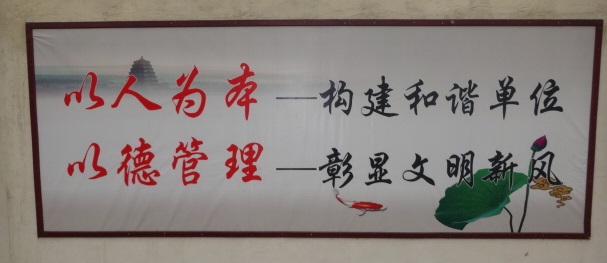 以人为本—构建和谐单位
以德管理—彰显文明新风